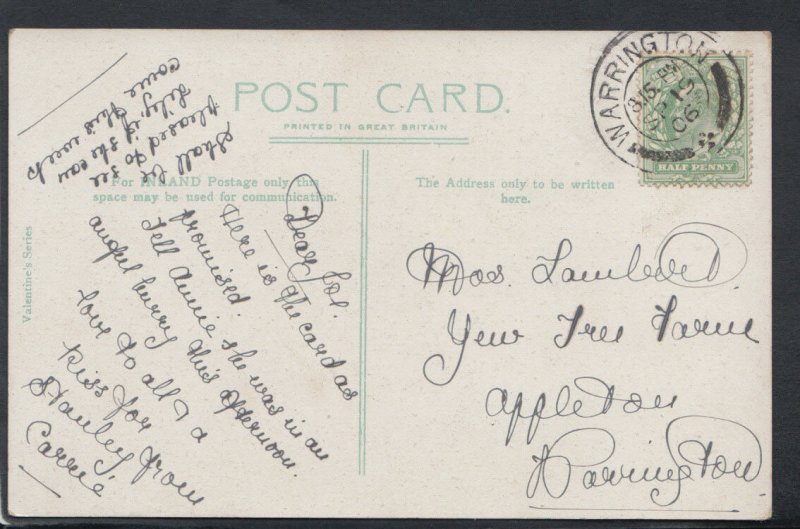 POST CARD.
PRINTED IN GREAT BRITAIN
For INLAND Postage only this
space may be used for communication.
The Address only to be written
here.
Valentine's Series
WARRINGTON
06
HALF PENNY
Dear
Here is the card as
promised.
Tell Annie she was in an
awful hurry this afternoon.
love to all & a
kiss for
Stanley from
Carrie
Shall be
pleased to see
Lily if she can
come this week
Mrs. Lambert.
Yew Tree Farm
Appleton
Warrington